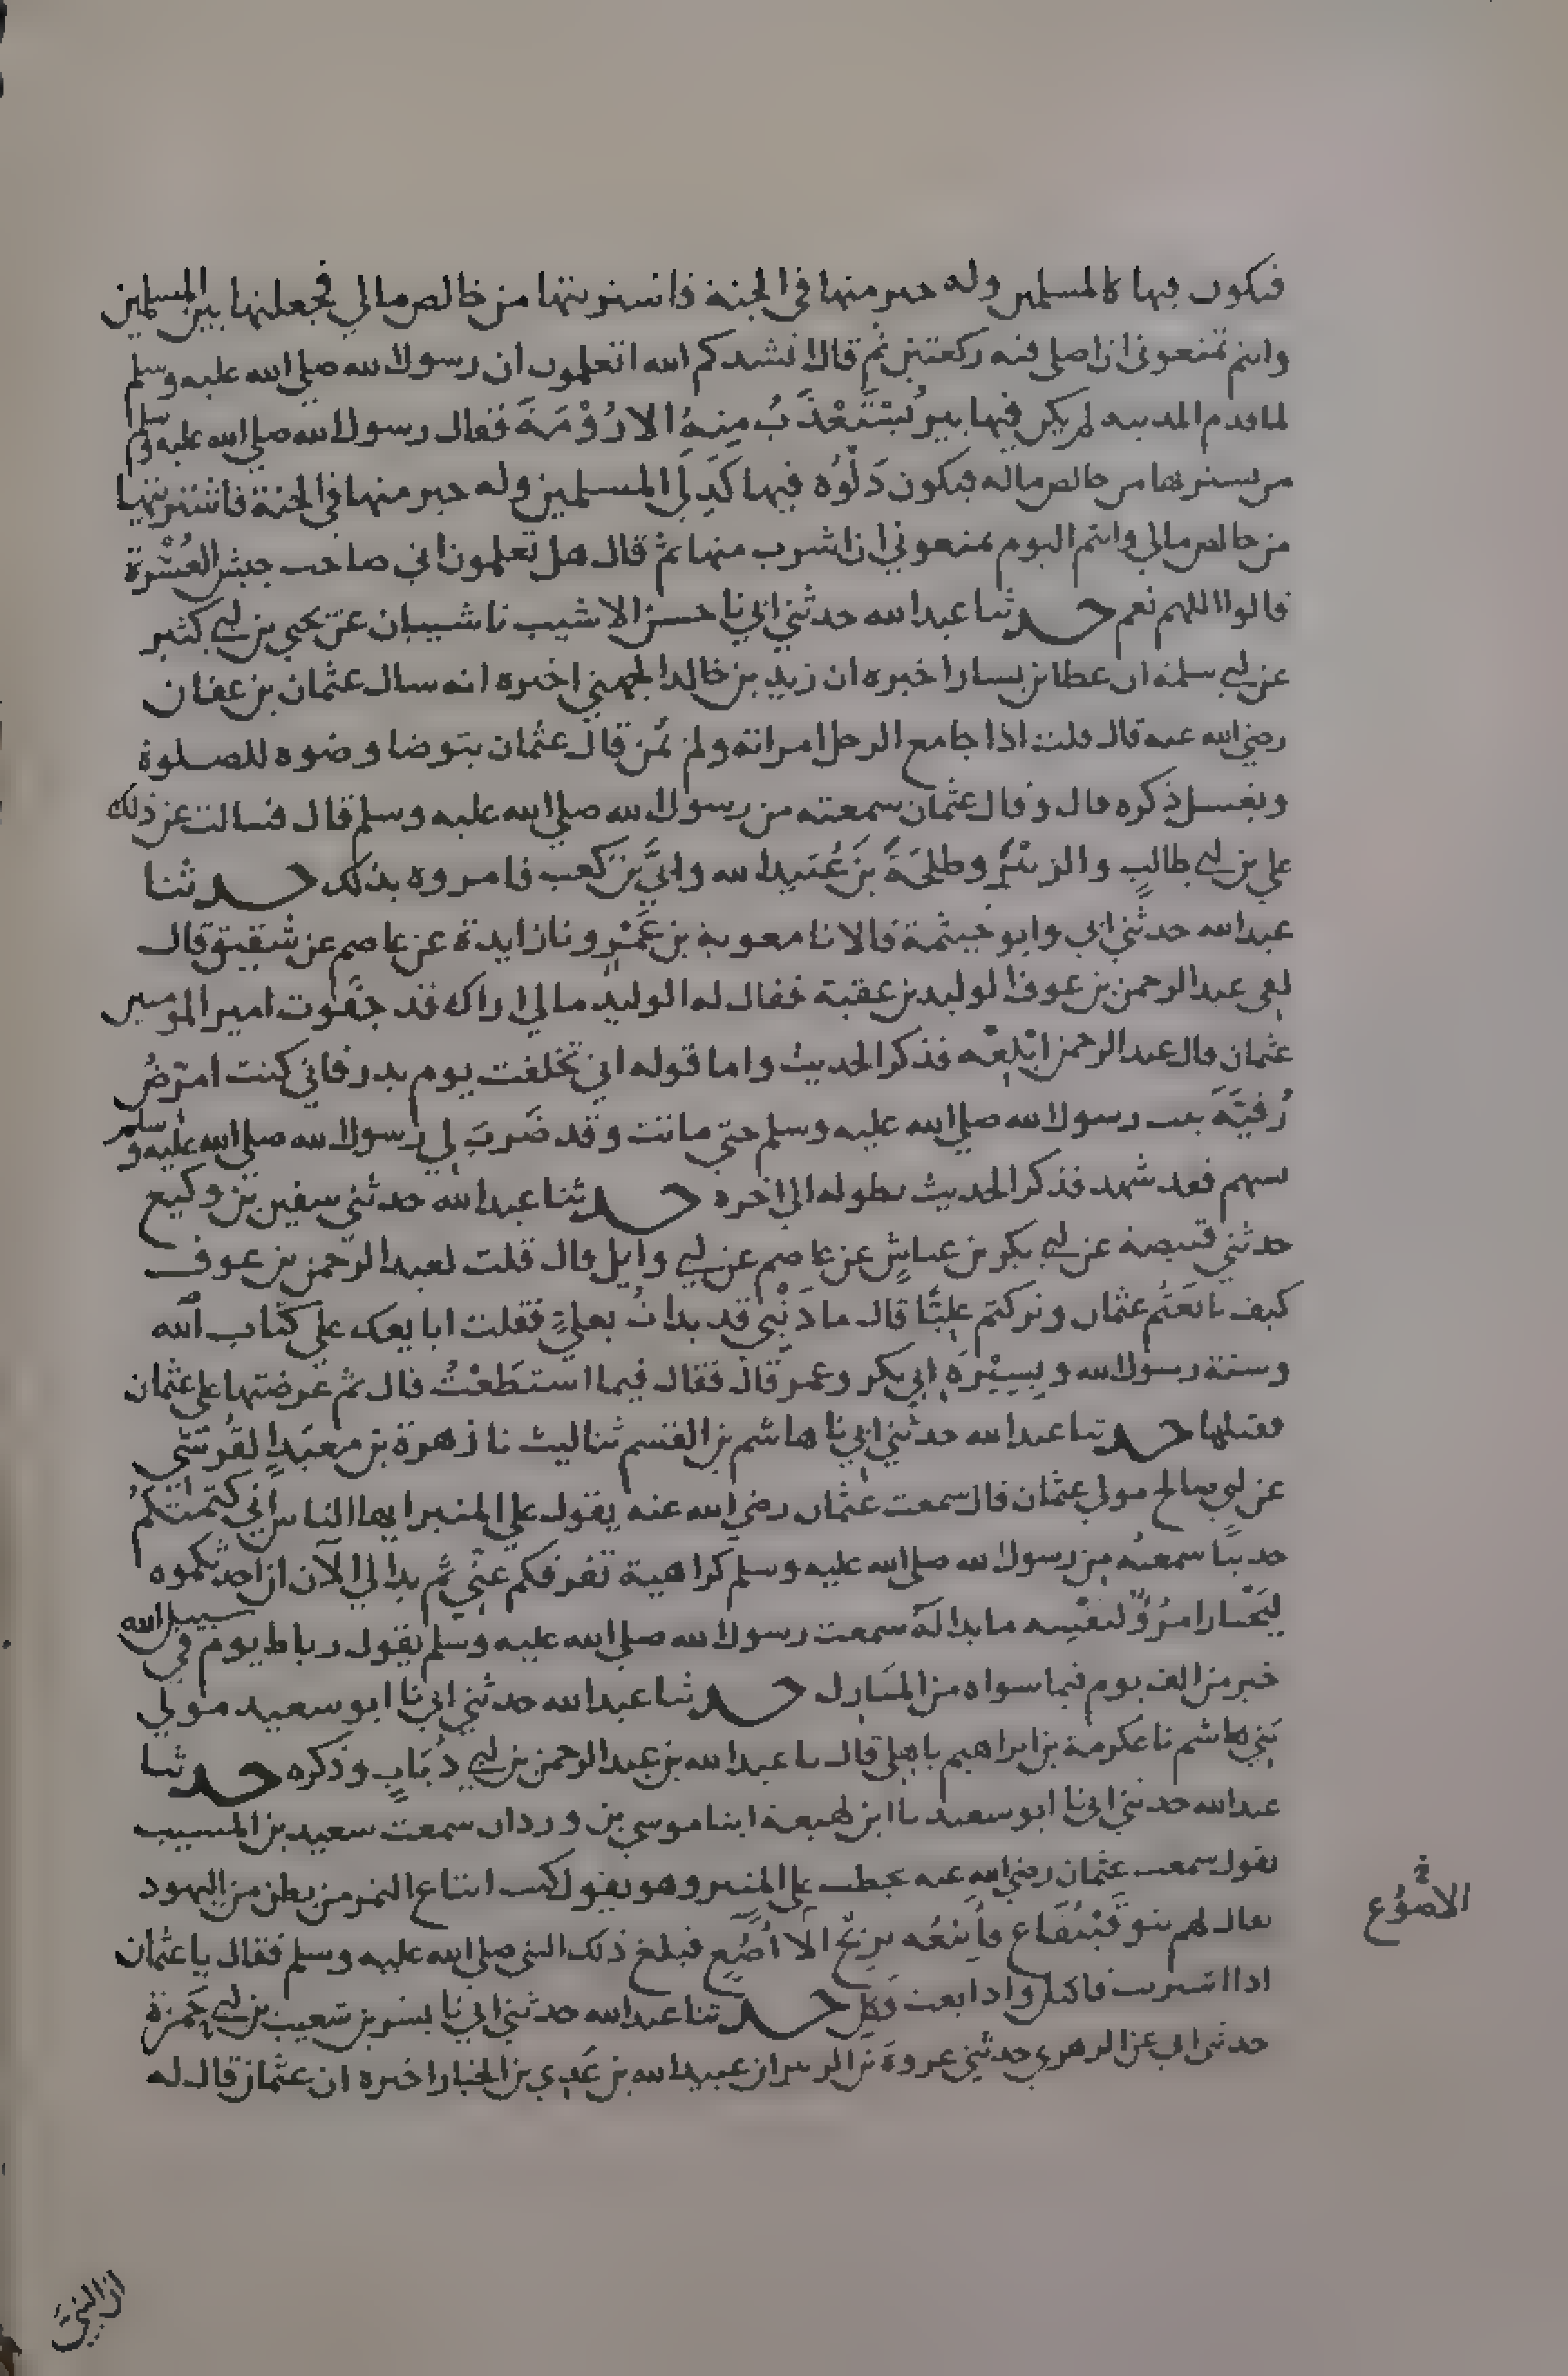 فيكون فيها كالمسلمين وله خير منها في الجنة فاشتريتها من خالص مالي فجعلتها بين المسلمين
وانتم تمنعوني ان اصلي فيه ركعتين ثم قال انشدكم الله اتعلمون ان رسول الله صلي الله عليه وسلم
لما قدم المدينه لم يكن فيها بير يُسْتَعْذَبُ مِنهُ الا رُوْمَةَ فقال رسول الله صلي الله عليه وسلم
من يشتريها من خالص ماله فيكون دَلْوُه فيها كَدِلَي المسلمين وله خير منها في الجنة فاشتريتها
من خالص مالي وانتم اليوم تمنعوني ان اشرب منها ثم قال هل تعلمون اني صاحب جيش العُسْرة
قالوا اللهم نعم حدثنا عبد الله حدثني ابي نا حسن الاشيب نا شيبان عن يحيي بن ابي كثير
عن ابي سلمة ان عطا بن يسار اخبره ان زيد بن خالد الجهني اخبره انه سال عثمان بن عفان
رضي الله عنه قال قلت اذا جامع الرجل امراته ولم يُمْنِ قال عثمان يتوضا وضوه للصلوة
ويغسل ذكره قال وقال عثمان سمعته من رسول الله صلي الله عليه وسلم قال فسالت عن ذلك
علي بن ابي طالبٍ والزبَيْر وطلحَةَ بنَ عُبَيدِ الله وابيَّ بن كعب فامروه بذلك حدثنا
عبد الله حدثني ابي وابو خيثمة قالا نا معوية بن عَمْرٍو نا زايدة عن عاصم عن شقيق قال
لقي عبد الرحمن بن عوف الوليد بن عقبة فقال له الوليد ما لي اراك قد جفَوت امير المومنين
عثمان قال عبد الرحمن ابْلِغْه فذكر الحديث واما قوله اني تخلفت يوم بدر فاني كنت امرّضُ
رُقيَّةَ بنت رسول الله صلي الله عليه وسلم حتي ماتت وقد ضَربَ لي رسول الله صلي الله عليه وسلم
سهم فقد شهد فذكر الحديث بطوله الي اخره حدثنا عبد الله حدثني سفين بن وكيع
حدثني قبيصة عن ابي بكر بن عياشٍ عن عاصم عن ابي وايل قال قلت لعبد الرحمن بن عوف
كيف بايَعتُم عثمان وتركتم عليًّا قال ما ذَنْبي قد بدأتُ بعليٍّ فقلت ابايعك علي كتاب الله
وسنة رسول الله وبِسِيْرَة ابي بكر وعمر قال فقال فيما استطَعْتُ قال ثم عرضتها علي عثمان
فقبلها حدثنا عبد الله حدثني ابي نا هاشم بن القسم ثنا ليث نا زهرة بن معبَدٍ القُرشي
عن ابي صالح مولي عثمان قال سمعت عثمان رضي الله عنه يقول علي المنبر ايها الناس اني كتمتكمُ
حديثا سمعته من رسول الله صلي الله عليه وسلم كراهية تفرقكم عنّي ثم بدا لي الآن ان احدثكموه
ليَخْتار امرُؤٌ لنفْسه ما بدا لَهُ سمعت رسول الله صلي الله عليه وسلم يقول رباط يوم في سبيل الله
خير من الف يوم فيما سواه من المنازل حدثنا عبد الله حدثني ابي نا ابو سعيد مولي
بَني هاشم نا عكرمة بن ابراهيم باهلي قال نا عبد الله بن عبد الرحمن بن ابي ذُبابٍ وذكره حدثنا
عبد الله حدثني ابي نا ابو سعيد نا ابن لهيعة ابنا موسي بن وردان سمعت سعيد بن المسيب
يقول سمعت عثمان رضي الله عنه يخطب علي المنبر وهو يقول كنت ابتاع التمر من بطن من اليهود
يقال لهم بنو قَيْنُقَاع فأبيعُه بربْحٍ الا اصُعٍ فبلغ ذلك النبي صلي الله عليه وسلم فقال يا عثمان
اذا اشتريت فاكتل واذا بعت فكِل حدثنا عبد الله حدثني ابي نا بشر بن شعيب بن ابي حَمزة
حدثني ابي عن الزهري حدثني عروة بن الزبير ان عبيد الله بن عَدِي بن الخيار اخبره ان عثمان قال له
الاصْوُع
ان النبيّ